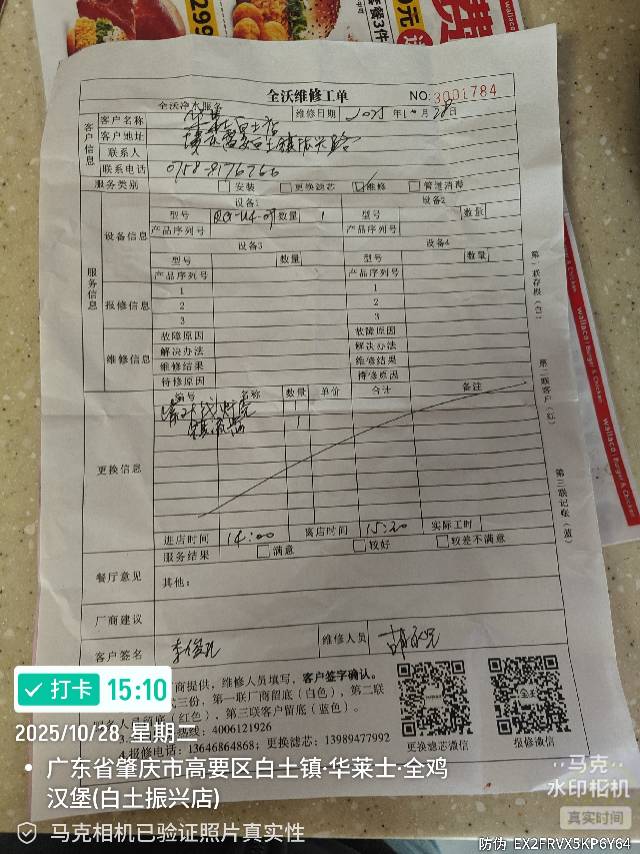 全沃维修工单
NO:3001784
全沃净水服务
维修日期 2025年10月28日
客户信息
客户名称
客户地址
联系人
联系电话 0758-8176766
服务类别 安装 更换滤芯 维修 管道消毒
服务信息
设备信息
设备1 设备2
型号 数量 1 型号 数量
产品序列号 产品序列号
设备3 设备4
型号 数量 型号 数量
产品序列号 产品序列号
报修信息
1 1
2 2
3 3
维修信息
故障原因 故障原因
解决办法 解决办法
维修结果 维修结果
待修原因 待修原因
更换信息
编号 名称 数量 单价 合计 备注
1
1
进店时间 14:00 离店时间 15:20 实际工时
服务结果 满意 较好 较差不满意
餐厅意见 其他:
厂商建议
客户签名 维修人员
第一联存根(白)
第二联客户(红)
第三联记账(蓝)
商提供,维修人员填写,客户签字确认。
式三份,第一联厂商留底(白色),第二联
服务人员留底(红色),第三联客户留底(蓝色)。
热线:4006121926
4.报修电话:13646864868;更换滤芯:13989477992
更换滤芯微信
报修微信
打卡 15:10
2025/10/28 星期二
广东省肇庆市高要区白土镇·华莱士·全鸡汉堡(白土振兴店)
马克相机已验证照片真实性
马克
水印相机
真实时间
防伪 EX2FRVX5KP6Y64
wallace | Burger & Chicken